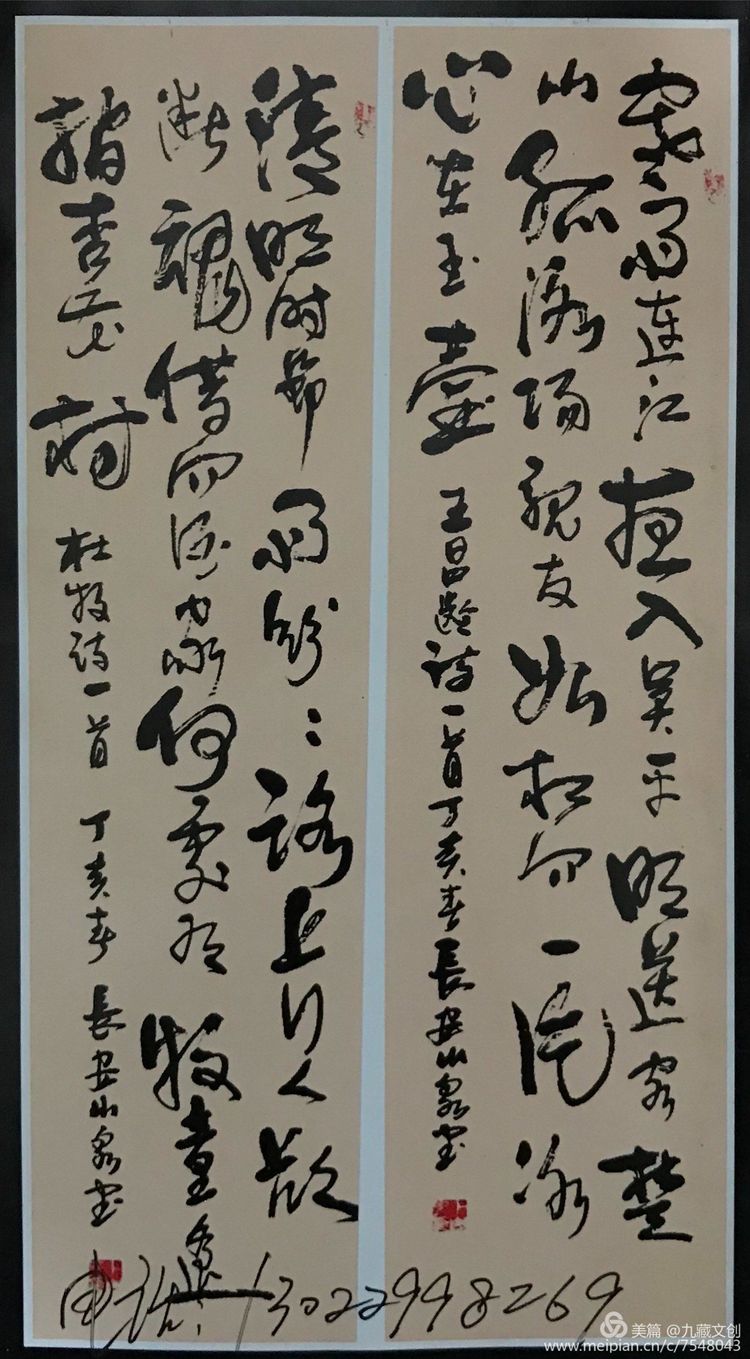 寒雨连江夜入吴平明送客楚
山孤洛阳親友如相问一片冰
心在玉壶 王昌龄诗一首丁亥春長安山泉书
清明时節雨纷々路上行人欲
断魂借问酒家何處有牧童遥
指杏花村 杜牧诗一首 丁亥春 長安山泉书
电话:13022998269
美篇 @九藏文创
www.meipian.cn/c/7548043